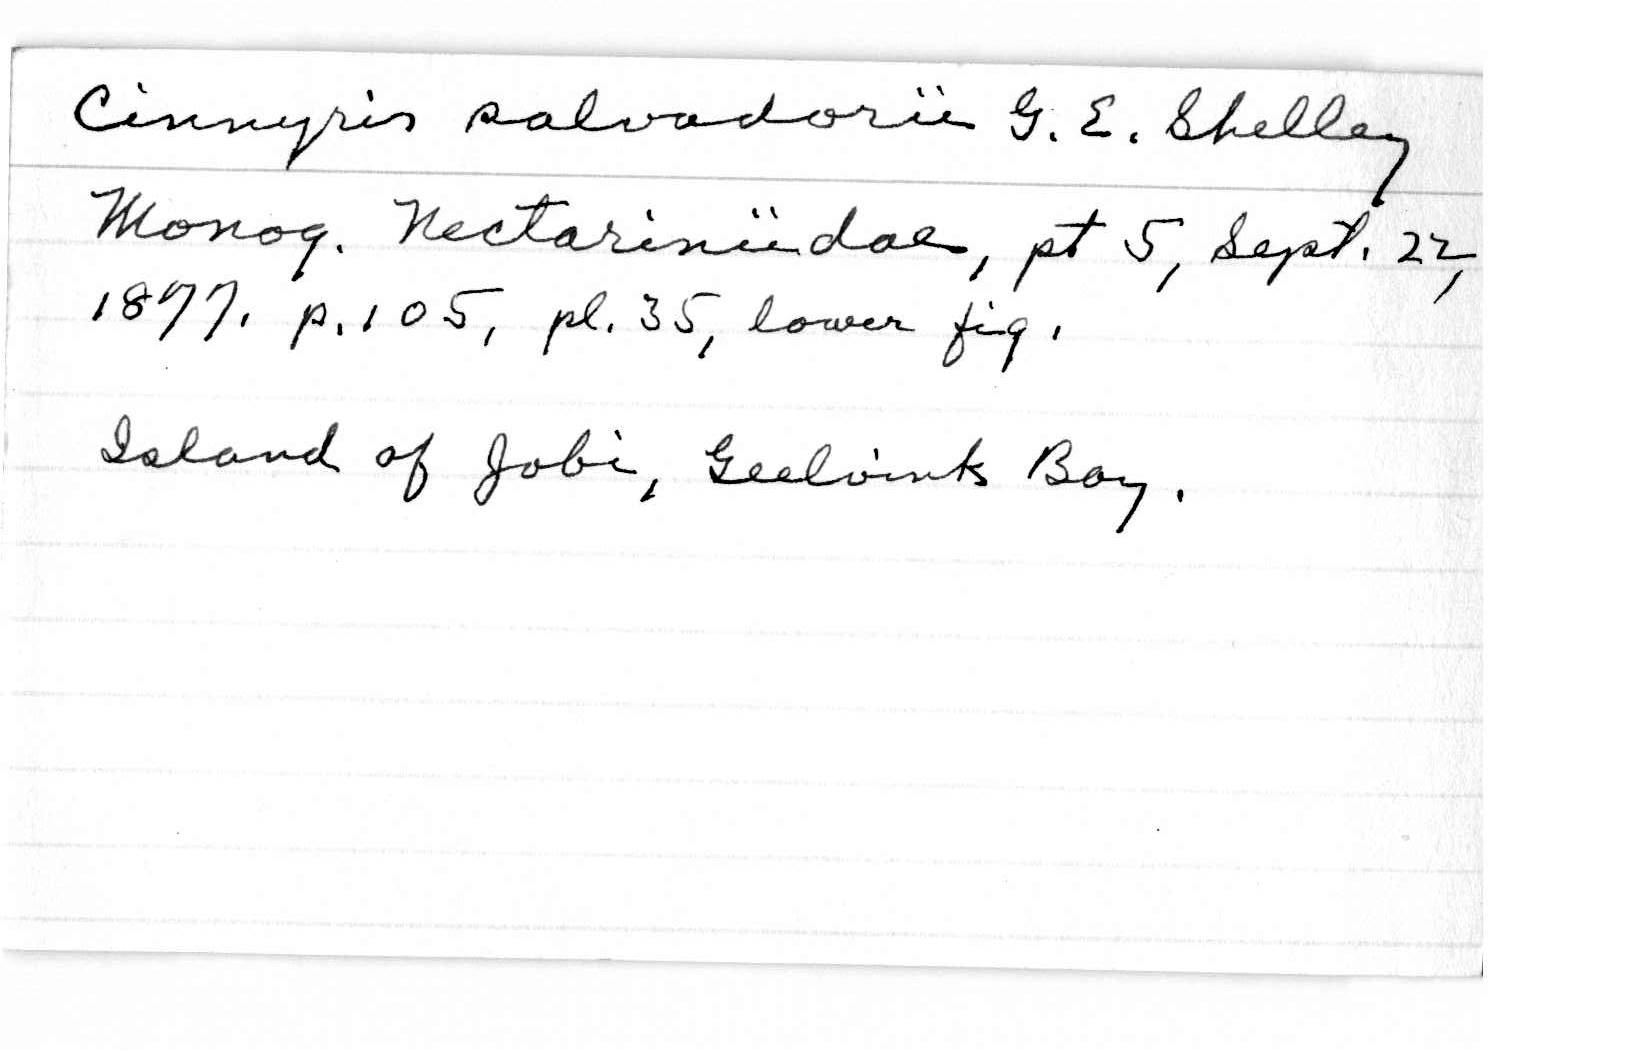 Cinnyris salvadorii G. E. Shelley
Monog. Nectariniidae, pt 5, Sept. 22,
1877. p. 105, pl. 35, lower fig.
Island of Jobi, Geelvink Bay.